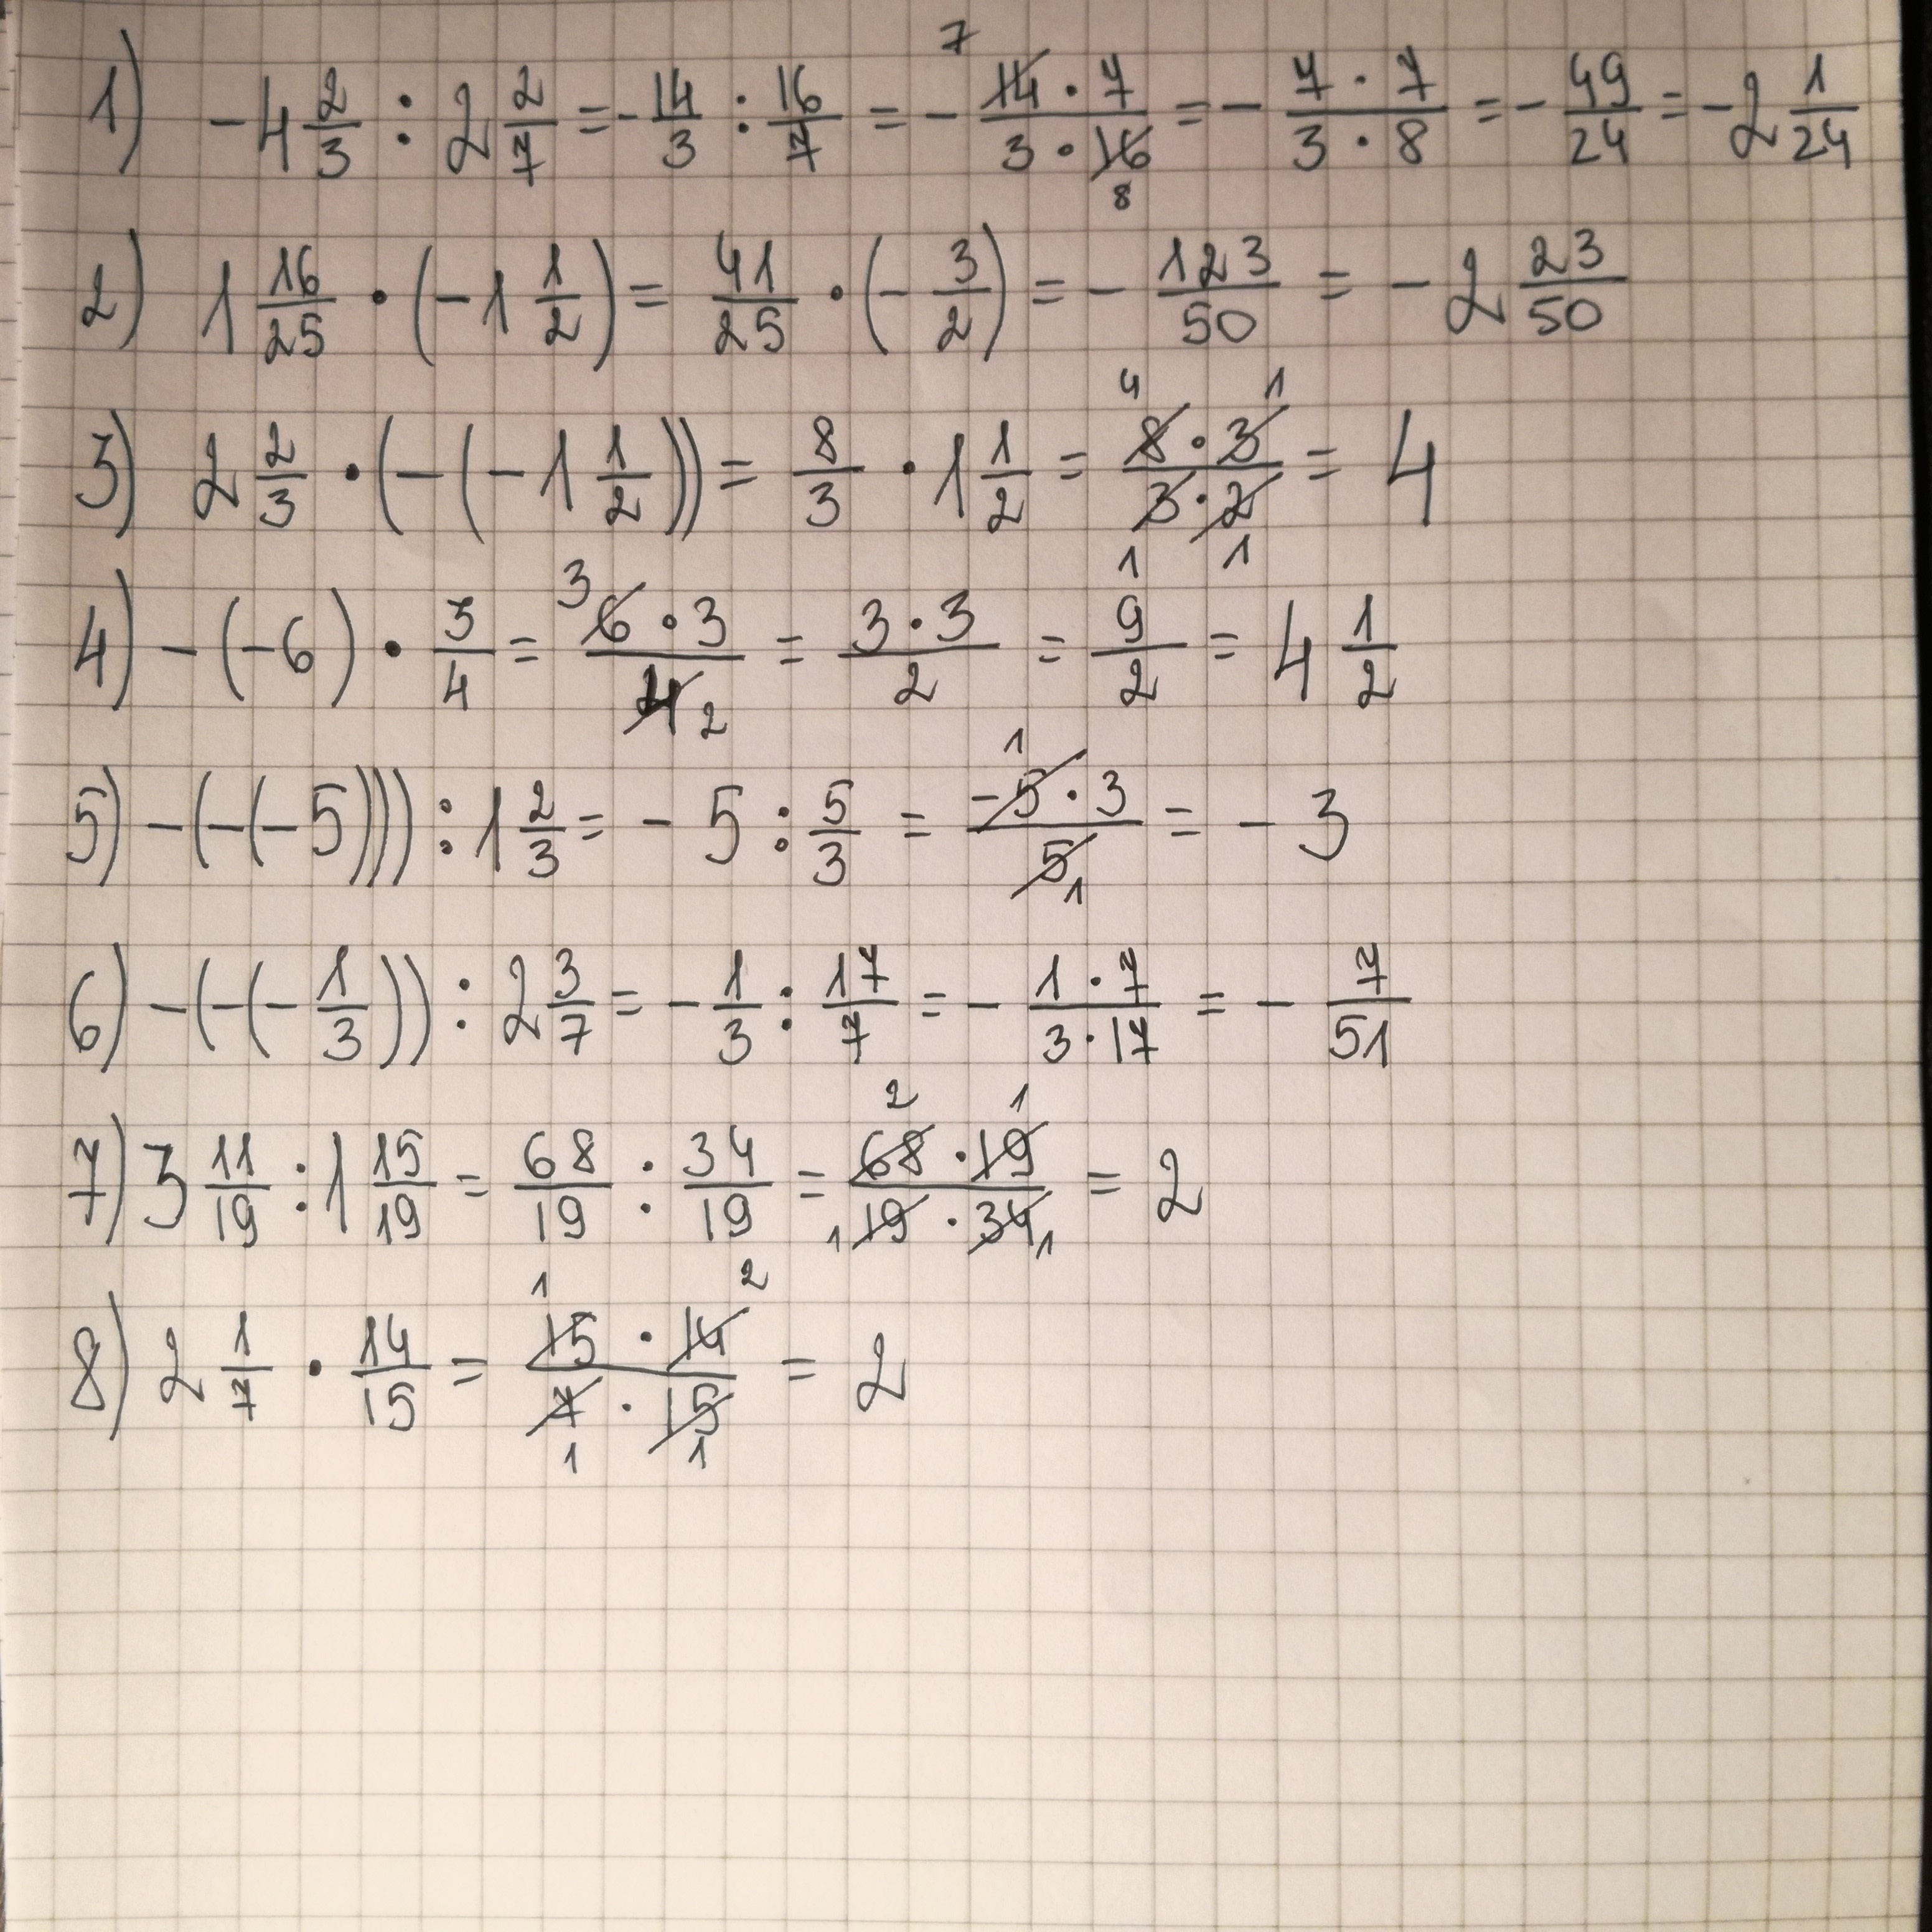 1) -4 2/3 : 2 2/7 = -14/3 : 16/7 = - (14 · 7)/(3 · 16) 7 8 = - (7 · 7)/(3 · 8) = - 49/24 = -2 1/24
2) 1 16/25 · (-1 1/2) = 41/25 · (- 3/2) = - 123/50 = - 2 23/50
3) 2 2/3 · (-(-1 1/2)) = 8/3 · 1 1/2 = (8 · 3)/(3 · 2) 4 1 1 1 = 4
4) -(-6) · 3/4 = (6 · 3)/4 3 2 = (3 · 3)/2 = 9/2 = 4 1/2
5) -(-(-5))) : 1 2/3 = - 5 : 5/3 = (-5 · 3)/5 1 1 = - 3
6) -(-(- 1/3)) : 2 3/7 = - 1/3 : 17/7 = - (1 · 7)/(3 · 17) = - 7/51
7) 3 11/19 : 1 15/19 = 68/19 : 34/19 = (68 · 19)/(19 · 34) 2 1 1 1 = 2
8) 2 1/7 · 14/15 = (15 · 14)/(7 · 15) 1 2 1 1 = 2